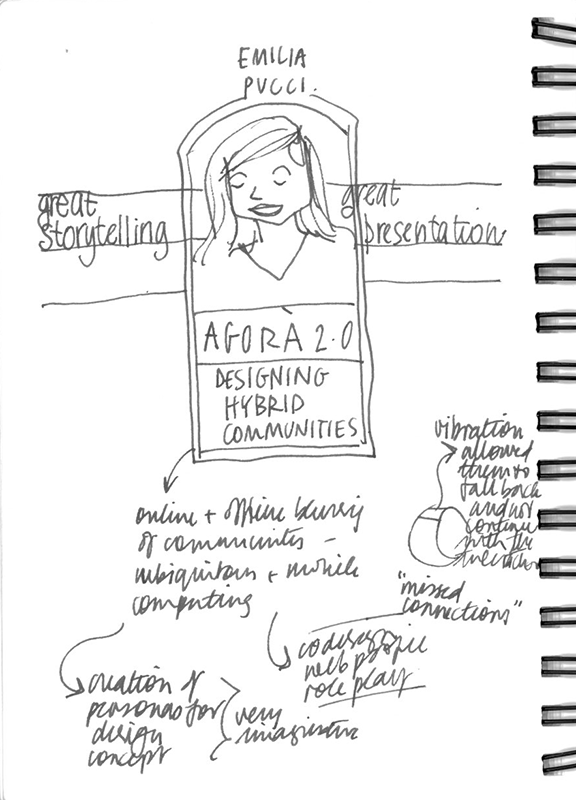 EMILIA
PUCCI.
great
storytelling
great
presentation
AGORÀ 2.0
DESIGNING
HYBRID
COMMUNITIES
online + offline blurring
of communities –
ubiquitous + mobile
computing
creation of
personas for
design
concept
very
imaginative
codesign
with people
role play
"missed
connections"
vibration
allowed
them to
fall back
and not
continue
with the